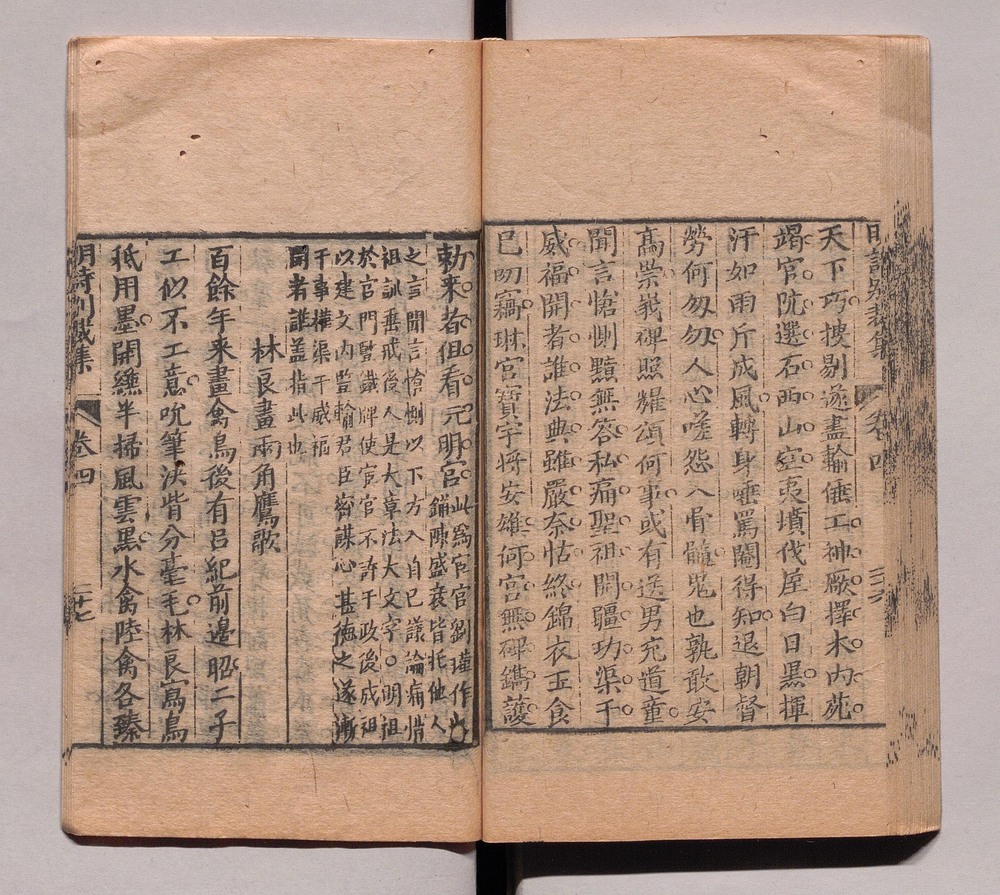 明詩別裁集 卷四
天下巧搜剔遂盡輸倕工神廠擇木內苑
蹋官阬選石西山空夷墳伐屋白日黑揮
汗如雨斤成風轉身唾罵閹得知退朝督
勞何匆匆人心嗟怨入骨髓鬼也孰敢安
高崇峩碑照耀頌何事或有送男充道童
聞言愴惻黯無容私痛聖祖開疆功渠干
威福開者誰法典雖嚴奈怙終錦衣玉食
已叨竊琳宮寶宇將安雄何宮無碑鐫護
勅來者但看元明宮
此為宦官劉瑾作也
鋪陳盛衰皆托他人
之言聞言愴惻以下方入自己議論痛惜
祖訓垂戒後人是大章法大文字○明祖
於官門豎鐵牌使宦官不許干政後成祖
以建文內監輸君臣密謀心甚德之遂漸
干事權渠干威福
開者誰蓋指此也
林良畫兩角鷹歌
百餘年來畫禽鳥後有呂紀前邊昭二子
工似不工意吮筆決眥分毫毛林良寫鳥
秖用墨開縑半掃風雲黑水禽陸禽各臻
明詩別裁集 卷四 二十七